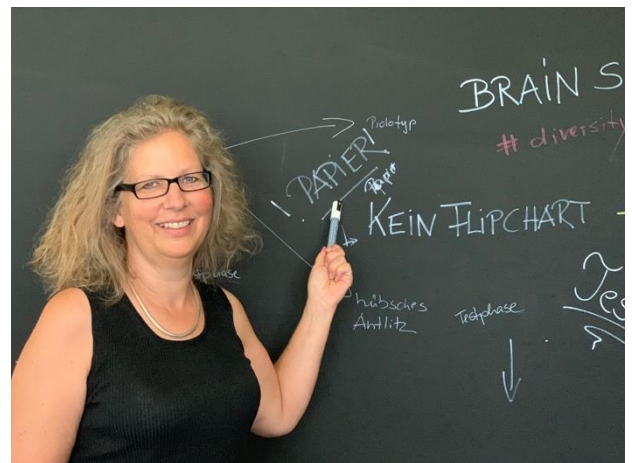 BRAIN S
# diversity
Prototyp
! PAPIER!
Papier
KEIN FLIPCHART
Tes
tphase
hübsches
Antlitz
Testphase